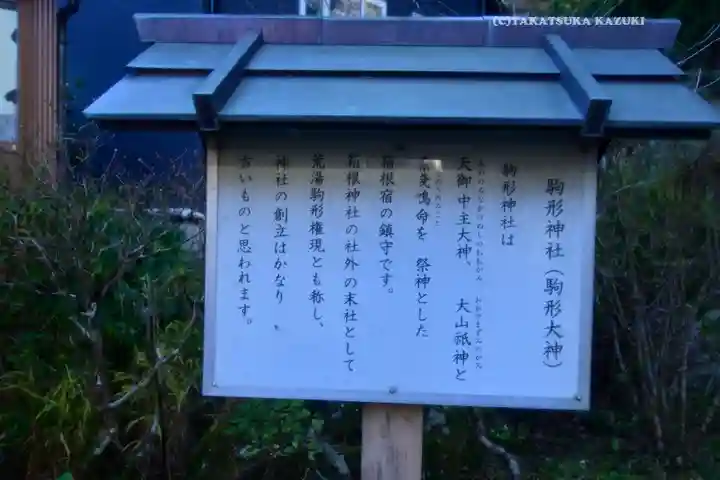 (C)TAKATSUKA KAZUKI
駒形神社(駒形大神)
駒形神社は
天御中主大神、 大山祇神と
あめのみなかぬしのおおかみ おおやまずみのかみ
受鳴命を 祭神とした
箱根宿の鎮守です。
箱根神社の社外の末社として
荒湯駒形権現とも称し、
神社の創立はかなり
古いものと思われます。